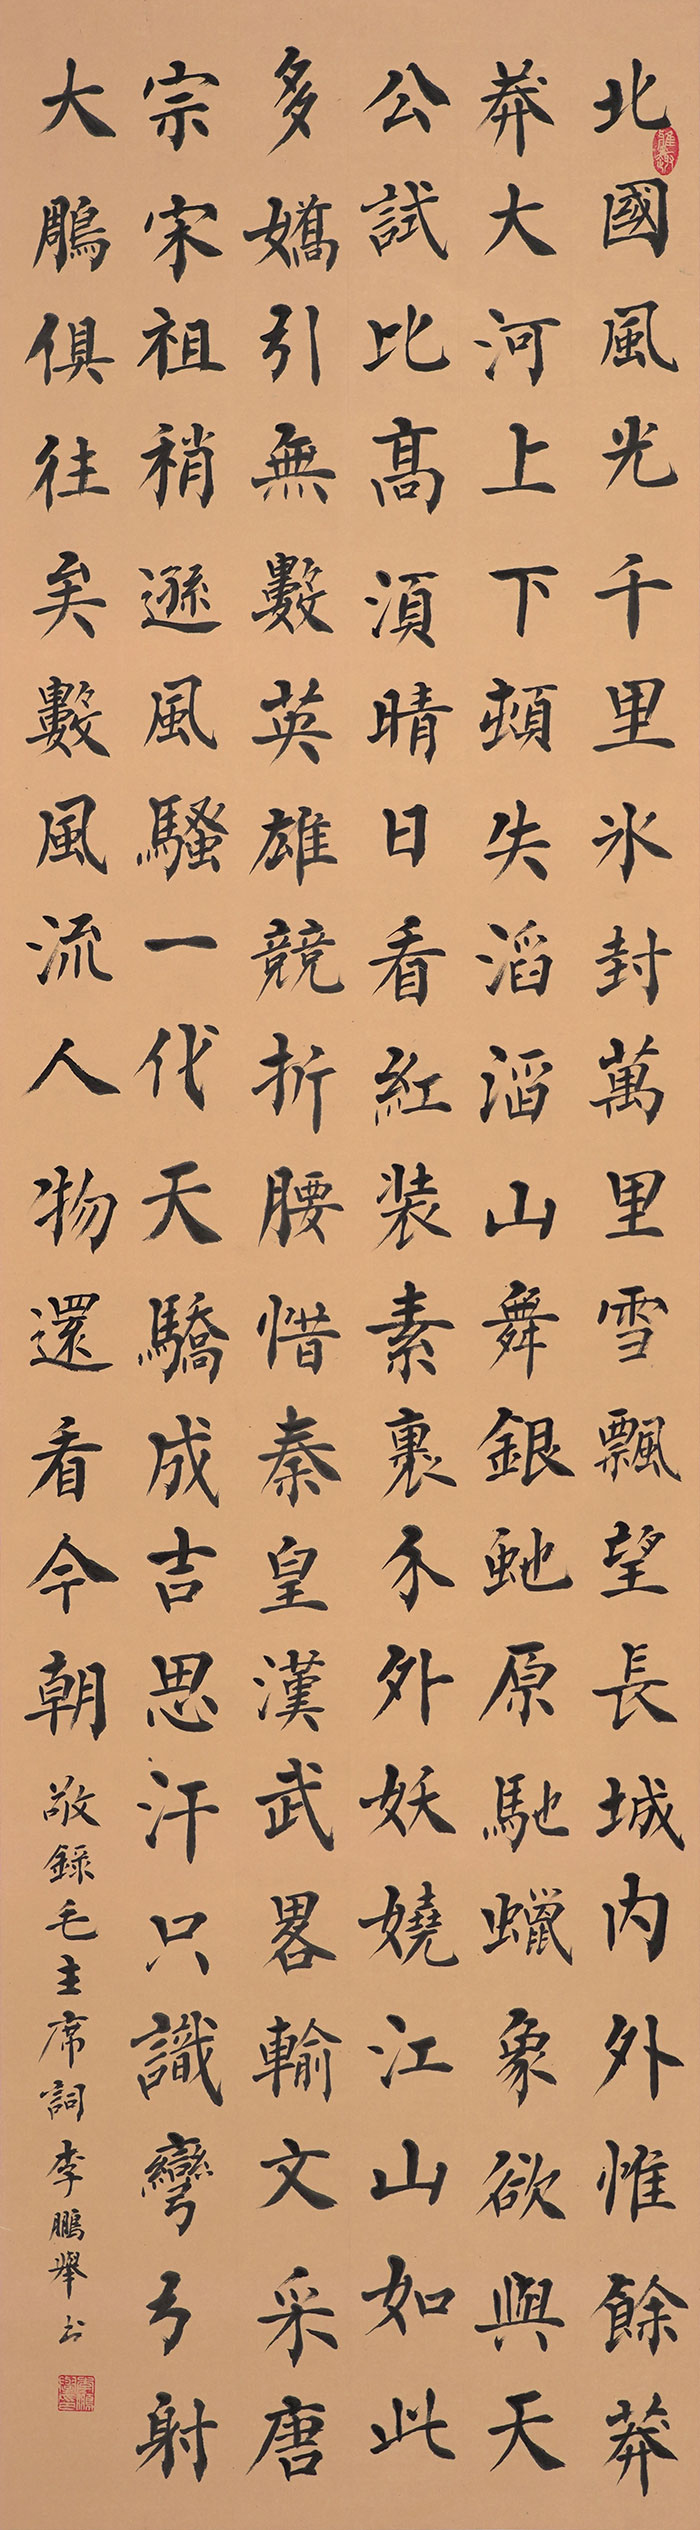 北國風光千里氷封萬里雪飄望長城内外惟餘莽
莽大河上下頓失滔滔山舞銀虵原馳蠟象欲與天
公試比髙湏晴日看紅装素裹分外妖嬈江山如此
多嬌引無數英雄競折腰惜秦皇漢武畧輸文采唐
宗宋祖稍遜風騷一代天驕成吉思汗只識彎弓射
大鵰俱往矣數風流人物還看今朝
敬錄毛主席詞李鵬舉书